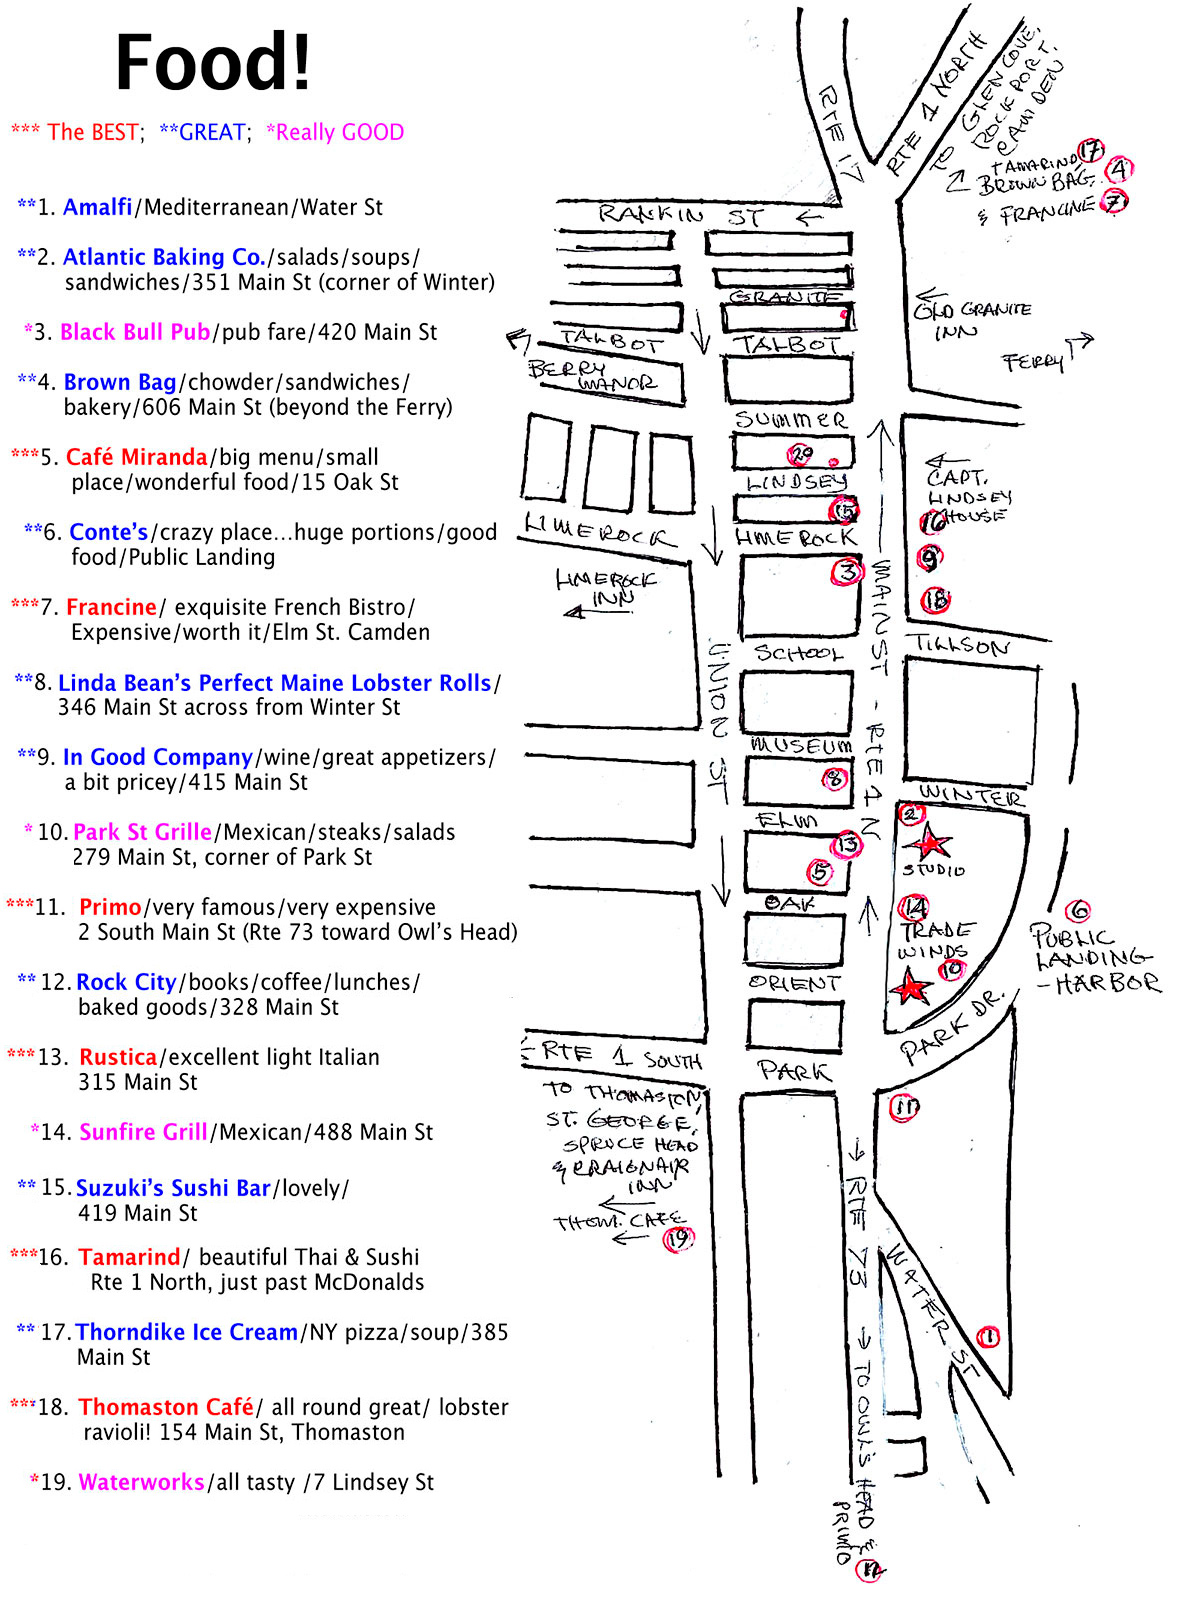 Food!
*** The BEST; **GREAT; *Really GOOD
**1. Amalfi/Mediterranean/Water St
**2. Atlantic Baking Co./salads/soups/
sandwiches/351 Main St (corner of Winter)
*3. Black Bull Pub/pub fare/420 Main St
**4. Brown Bag/chowder/sandwiches/
bakery/606 Main St (beyond the Ferry)
***5. Café Miranda/big menu/small
place/wonderful food/15 Oak St
**6. Conte's/crazy place...huge portions/good
food/Public Landing
***7. Francine/ exquisite French Bistro/
Expensive/worth it/Elm St. Camden
**8. Linda Bean's Perfect Maine Lobster Rolls/
346 Main St across from Winter St
**9. In Good Company/wine/great appetizers/
a bit pricey/415 Main St
* 10. Park St Grille/Mexican/steaks/salads
279 Main St, corner of Park St
***11. Primo/very famous/very expensive
2 South Main St (Rte 73 toward Owl's Head)
** 12. Rock City/books/coffee/lunches/
baked goods/328 Main St
***13. Rustica/excellent light Italian
315 Main St
*14. Sunfire Grill/Mexican/488 Main St
** 15. Suzuki's Sushi Bar/lovely/
419 Main St
***16. Tamarind/ beautiful Thai & Sushi
Rte 1 North, just past McDonalds
** 17. Thorndike Ice Cream/NY pizza/soup/385
Main St
***18. Thomaston Café/ all round great/ lobster
ravioli! 154 Main St, Thomaston
*19. Waterworks/all tasty /7 Lindsey St
RTE 17
RTE 1 NORTH
TO GLEN COVE,
ROCK PORT,
CAMDEN
TAMARIND 17
BROWN BAG. 4
& FRANCINE 7
RANKIN ST
GRANITE
OLD GRANITE
INN
FERRY
TALBOT
TALBOT
BERRY
MANOR
SUMMER
29
LINDSEY
CAPT.
LINDSEY
HOUSE
15
16
LIMEROCK
LIMEROCK
9
3
18
LIMEROCK
INN
MAIN ST - RTE 1 N
UNION ST
SCHOOL
TILLSON
MUSEUM
8
WINTER
2
ELM
13
STUDIO
5
OAK
14
TRADE
WINDS
10
6
PUBLIC
LANDING
-HARBOR
ORIENT
PARK DR.
RTE 1 SOUTH
PARK
11
TO THOMASTON,
ST. GEORGE,
SPRUCE HEAD
& CRAIGNAIR
INN
THOM. CAFE
19
RTE 73
WATER ST
1
TO OWL'S HEAD &
PRIMO